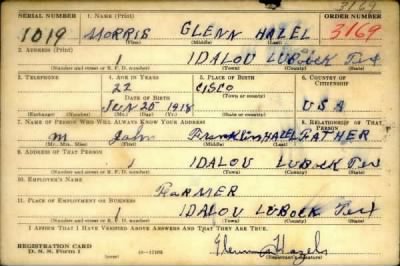 3169
SERIAL NUMBER 1. NAME (Print) ORDER NUMBER
1019 MORRIS GLENN HAZEL 3169
(First) (Middle) (Last)
2. ADDRESS (Print)
1 IDALOU LUBOCK Tex
(Number and street or R. F. D. number) (Town) (County) (State)
3. TELEPHONE 4. AGE IN YEARS 5. PLACE OF BIRTH 6. COUNTRY OF CITIZENSHIP
22 CISCO
DATE OF BIRTH (Town or county)
20 1918 USA
(Exchange) (Number) (Mo.) (Day) (Yr.) (State or country)
7. NAME OF PERSON WHO WILL ALWAYS KNOW YOUR ADDRESS 8. RELATIONSHIP OF THAT PERSON
M John Franklin HAZEL FATHER
(Mr., Mrs., Miss) (First) (Middle) (Last)
9. ADDRESS OF THAT PERSON
1 IDALOU LUBOCK Tex
(Number and street or R. F. D. number) (Town) (County) (State)
10. EMPLOYER'S NAME
FARMER
11. PLACE OF EMPLOYMENT OR BUSINESS
1 IDALOU LUBOCK Tex
(Number and street or R. F. D. number) (Town) (County) (State)
I AFFIRM THAT I HAVE VERIFIED ABOVE ANSWERS AND THAT THEY ARE TRUE.
REGISTRATION CARD
D. S. S. Form 1 (Registrant's signature)